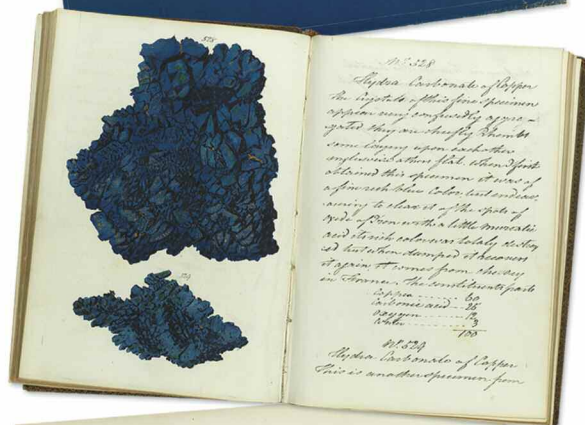 528
529
No. 528
Hydra Carbonate of Copper
the crystals of this fine specimen
appear very confusedly aggre=
gated they are chiefly Rhombs
some leaning upon each other
others flat. when I first
obtained this specimen it was of
a fine rich blue Color but endeav-
ouring to clear it of the spots of
oxide of Iron with a little muriatic
acid its rich colour was totaly destroy
ed but when damped it recovers
it again It comes from chessy
in France. The constituent parts
Copper ...... 60
carbonic acid ... 25
oxygen ...... 12
water ...... 3
100
No. 529
Hydra Carbonate of Copper
This is another specimen from